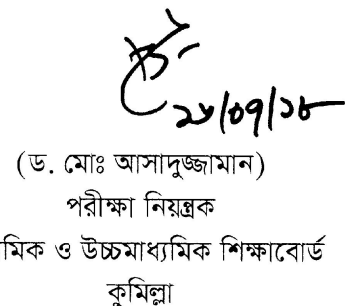 ২৮/০৭/১৮
(ড. মোঃ আসাদুজ্জামান)
পরীক্ষা নিয়ন্ত্রক
মিক ও উচ্চমাধ্যমিক শিক্ষাবোর্ড
কুমিল্লা